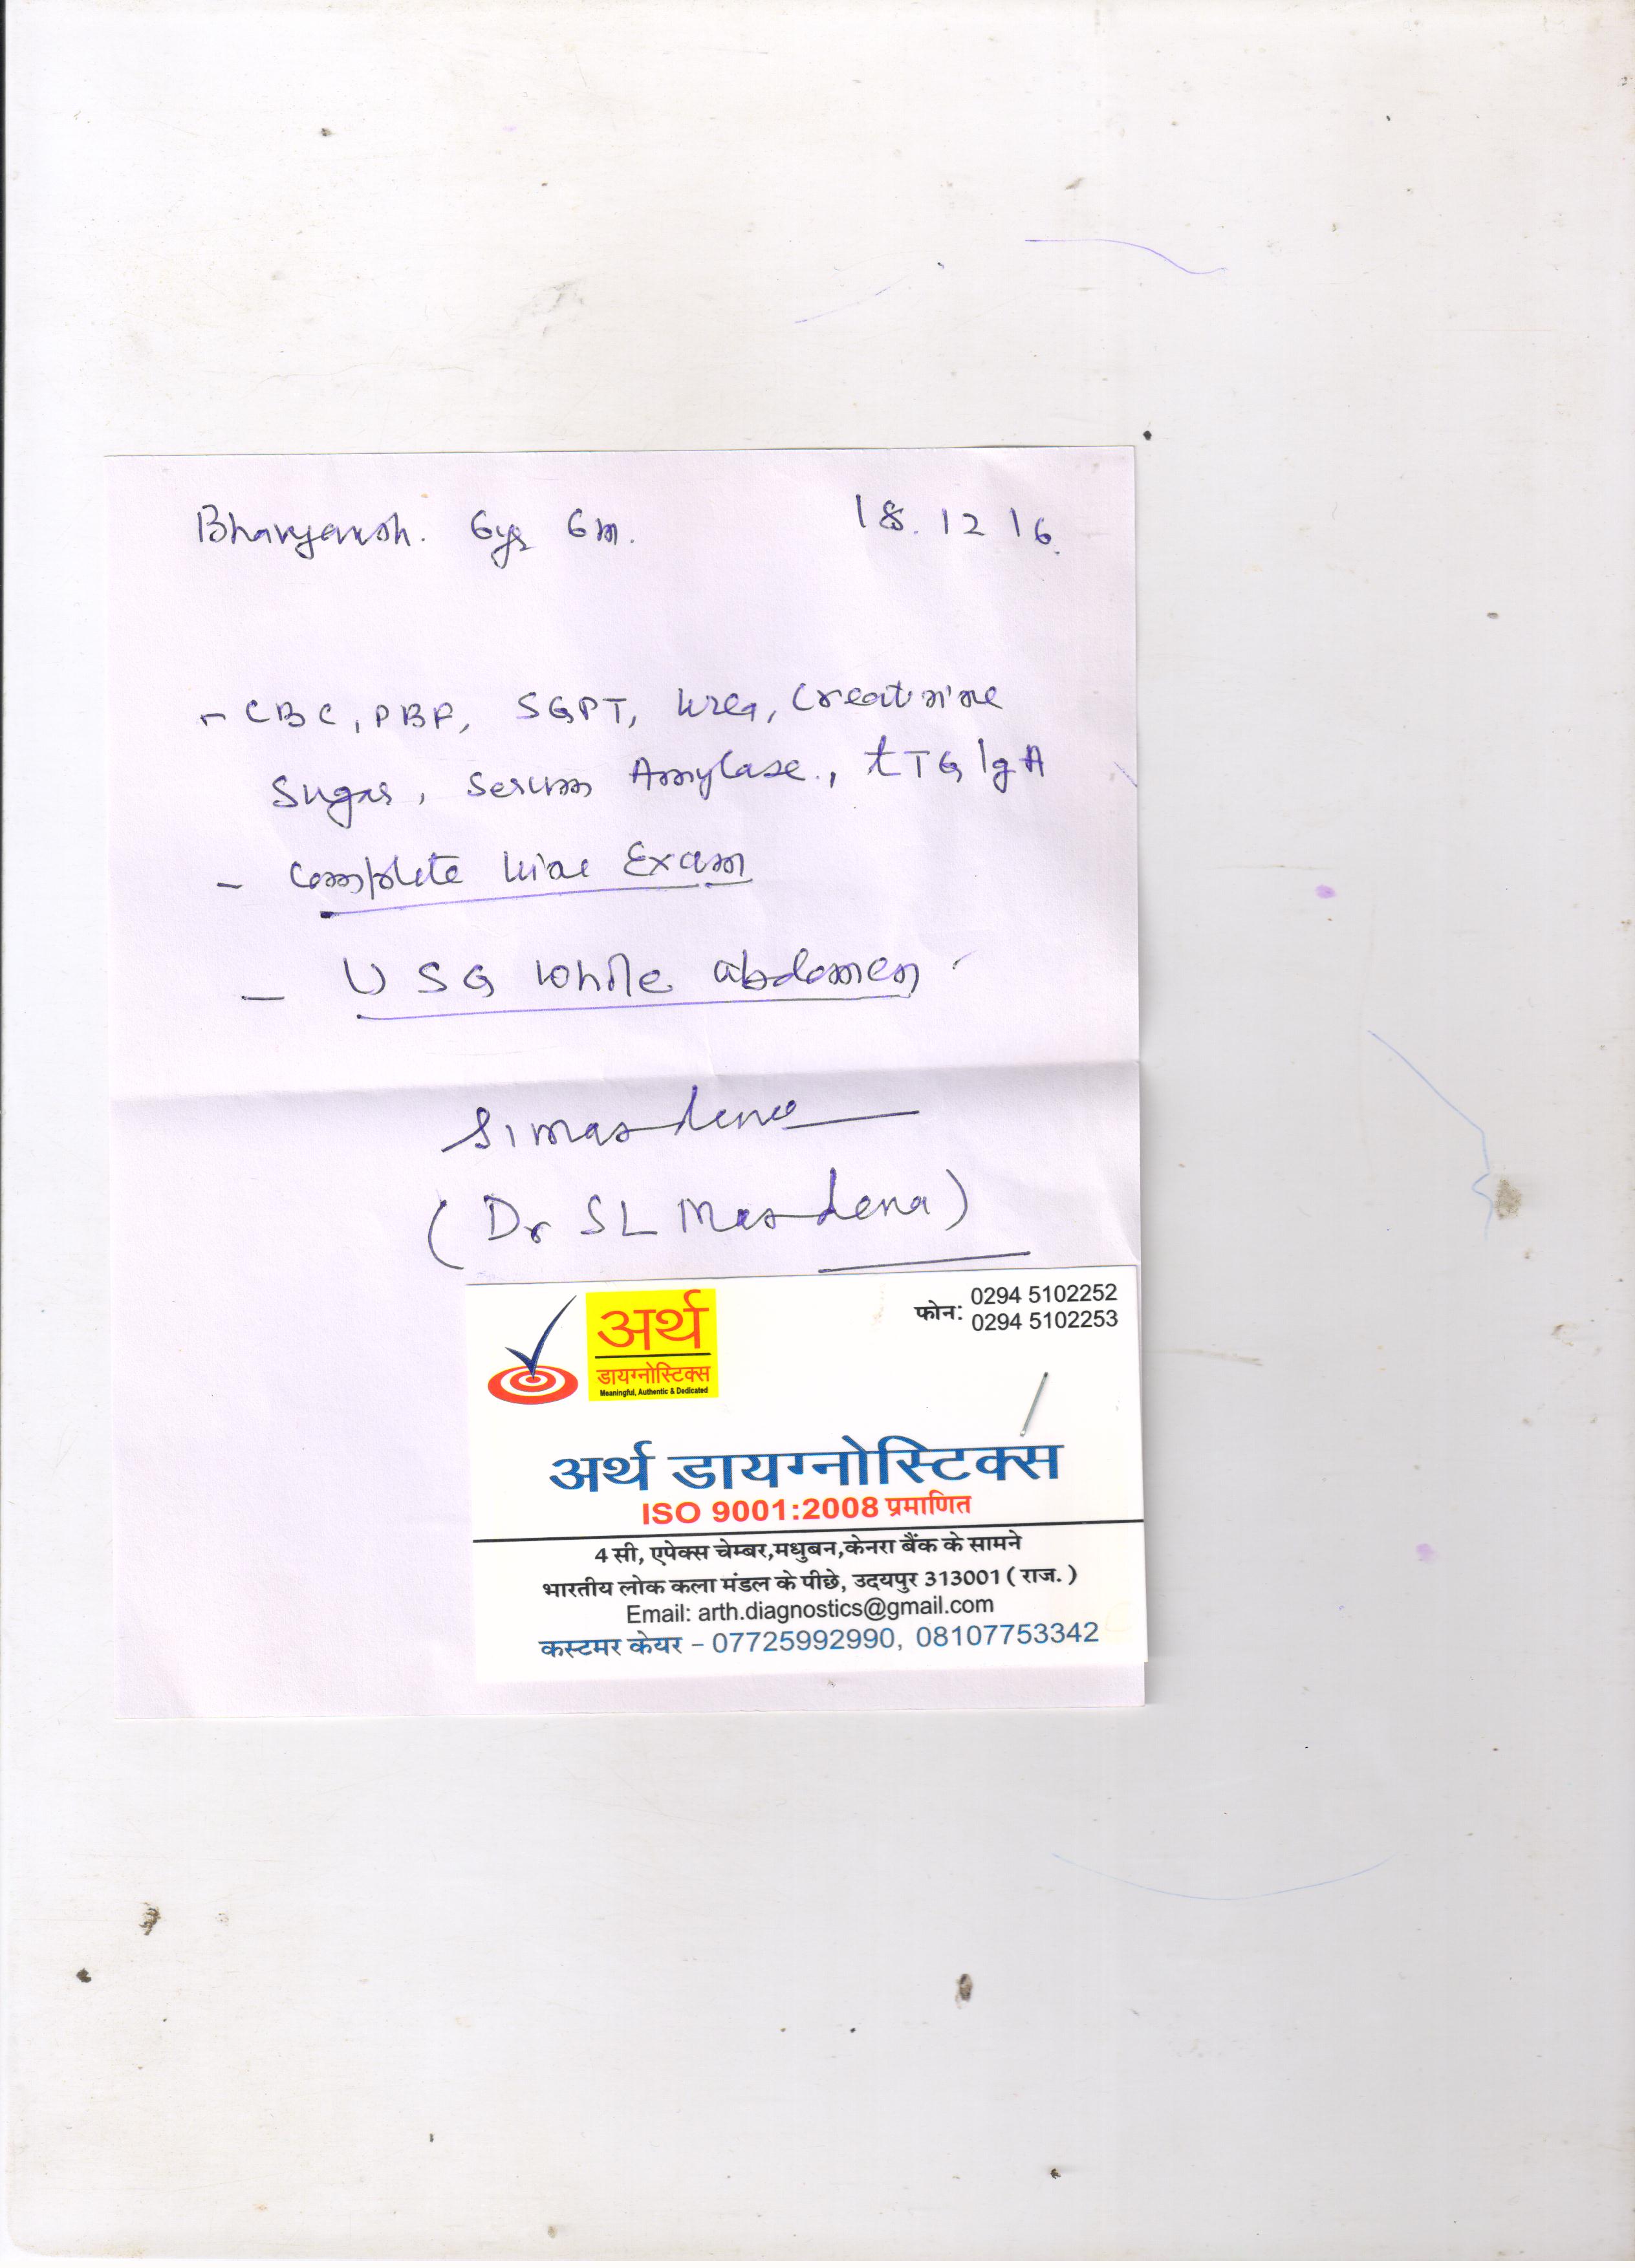 Bhavyansh. 6yr 6m. 18.12 16.
- CBC, PBF, SGPT, Urea, Creatinine
Sugar, Serum Amylase, tTG IgA
- Complete Urine Exam
- USG Whole abdomen
(Dr SL Mardena)
फोन: 0294 5102252
0294 5102253
अर्थ
डायग्नोस्टिक्स
Meaningful, Authentic & Dedicated
अर्थ डायग्नोस्टिक्स
ISO 9001:2008 प्रमाणित
4 सी, एपेक्स चेम्बर,मधुबन,केनरा बैंक के सामने
भारतीय लोक कला मंडल के पीछे, उदयपुर 313001 ( राज. )
Email: arth.diagnostics@gmail.com
कस्टमर केयर – 07725992990, 08107753342